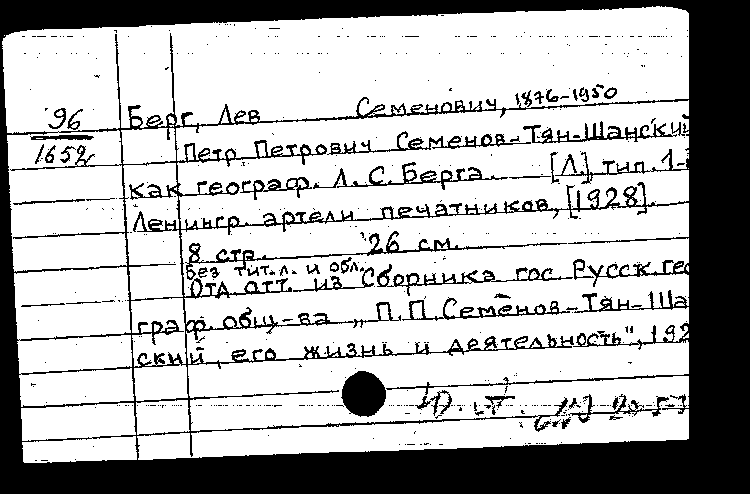 96 Берг, Лев Семенович, 1876-1950
1652 Петр Петрович Семенов-Тян-Шанский
как географ. Л.С.Берга. [Л.], тип. 1-
Ленингр. артели печатников, [1928].
8 стр. 26 см.
Без тит.л. и обл.
Отд. отт. из Сборника гос. Русск. гео
граф. общ-ва „П.П.Семенов-Тян-Ша
ский, его жизнь и деятельность", 192